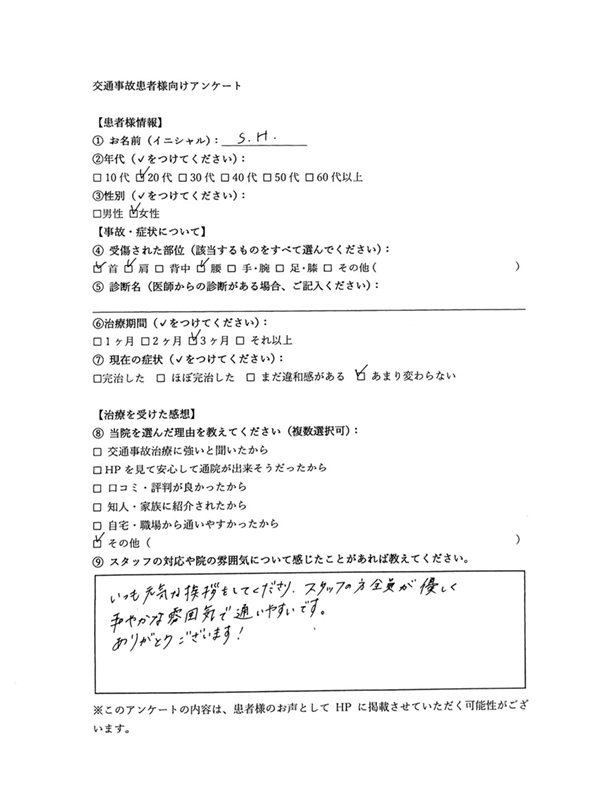 交通事故患者様向けアンケート
【患者様情報】
① お名前（イニシャル）: S.H.
②年代（✓をつけてください）：
□ 10 代 ☑20 代 □ 30 代 □ 40 代 □ 50 代 □ 60 代以上
③性別（✓をつけてください）：
□男性 ☑女性
【事故・症状について】
④ 受傷された部位（該当するものをすべて選んでください）：
☑ 首 ☑ 肩 □ 背中 ☑ 腰 □ 手・腕 □ 足・膝 □ その他（ ）
⑤ 診断名（医師からの診断がある場合、ご記入ください）：
⑥治療期間（✓をつけてください）：
□1ヶ月 □2ヶ月 ☑3ヶ月 □ それ以上
⑦ 現在の症状（✓をつけてください）：
□完治した □ ほぼ完治した □ まだ違和感がある ☑ あまり変わらない
【治療を受けた感想】
⑧ 当院を選んだ理由を教えてください（複数選択可）：
□ 交通事故治療に強いと聞いたから
□HP を見て安心して通院が出来そうだったから
□ 口コミ・評判が良かったから
□ 知人・家族に紹介されたから
□ 自宅・職場から通いやすかったから
☑ その他（ ）
⑨ スタッフの対応や院の雰囲気について感じたことがあれば教えてください。
いつも元気な挨拶をしてくださり、スタッフの方全員が優しく
和やかな雰囲気で通いやすいです。
ありがとうございます！
※このアンケートの内容は、患者様のお声として HP に掲載させていただく可能性がござ
います。